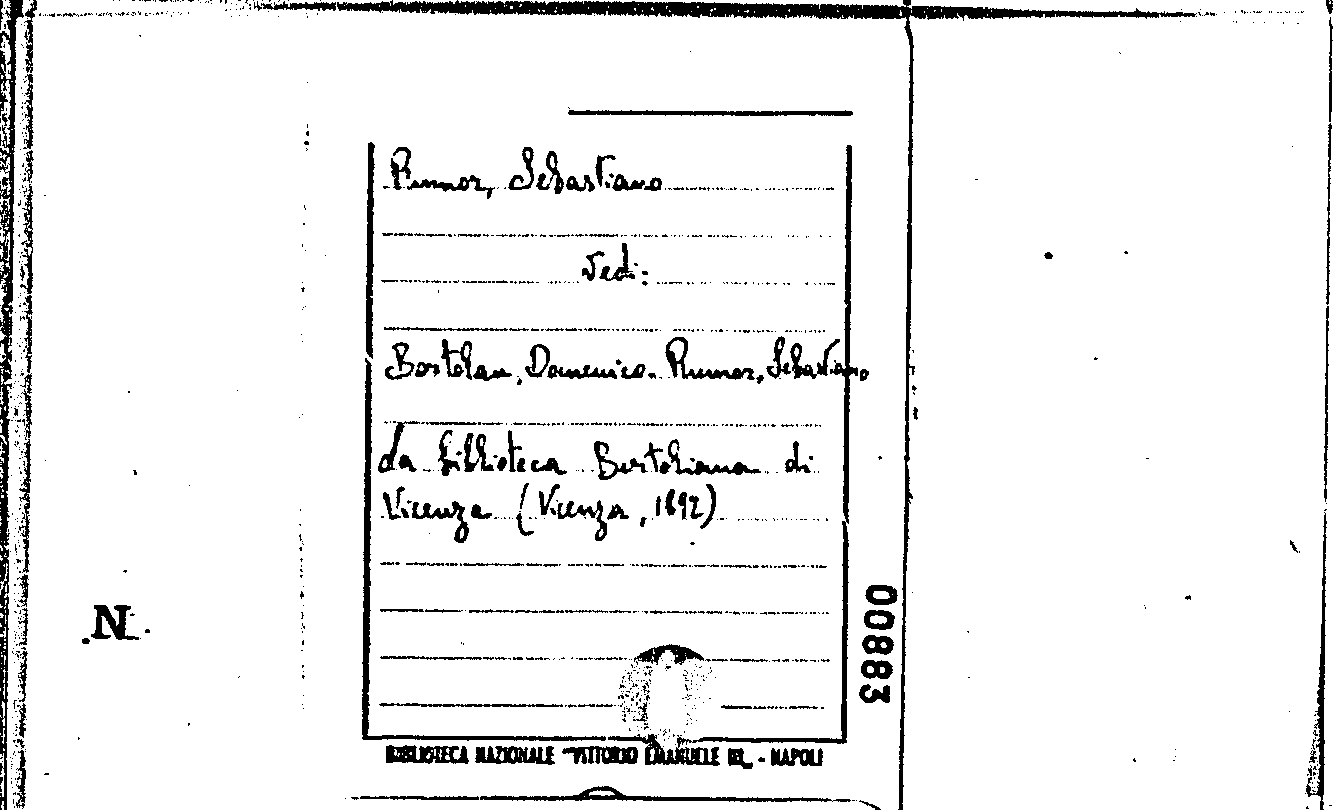 Rumor, Sebastiano
Vedi:
Bortolan, Domenico. Rumor, Sebastiano
La biblioteca Bertoliana di
Vicenza (Vicenza, 1892)
N
00883
BIBLIOTECA NAZIONALE "VITTORIO EMANUELE III„ - NAPOLI